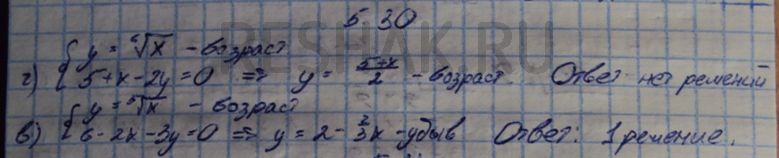 5 30
{ y = ⁶√x - возраст
г) { 5+x-2y=0 => y = (5+x)/2 - возраст. Ответ нет решений
{ y = ⁶√x - возраст
в) { 6-2x-3y=0 => y = 2 - 2/3x - убыв Ответ: 1 решение.
RESHAK.RU